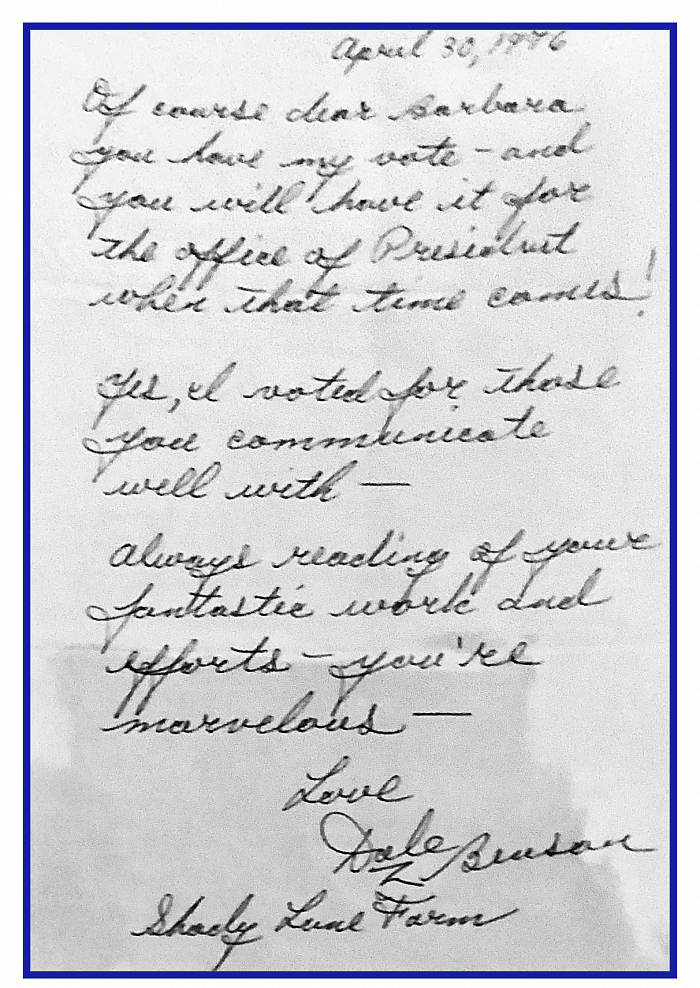 April 30, 1976
Of course dear Barbara
you have my vote - and
you will have it for
the office of President
when that time comes!
Yes, I voted for those
you communicate
well with —
always reading of your
fantastic work and
efforts - you're
marvelous —
Love
Dale Benson
Shady Lane Farm